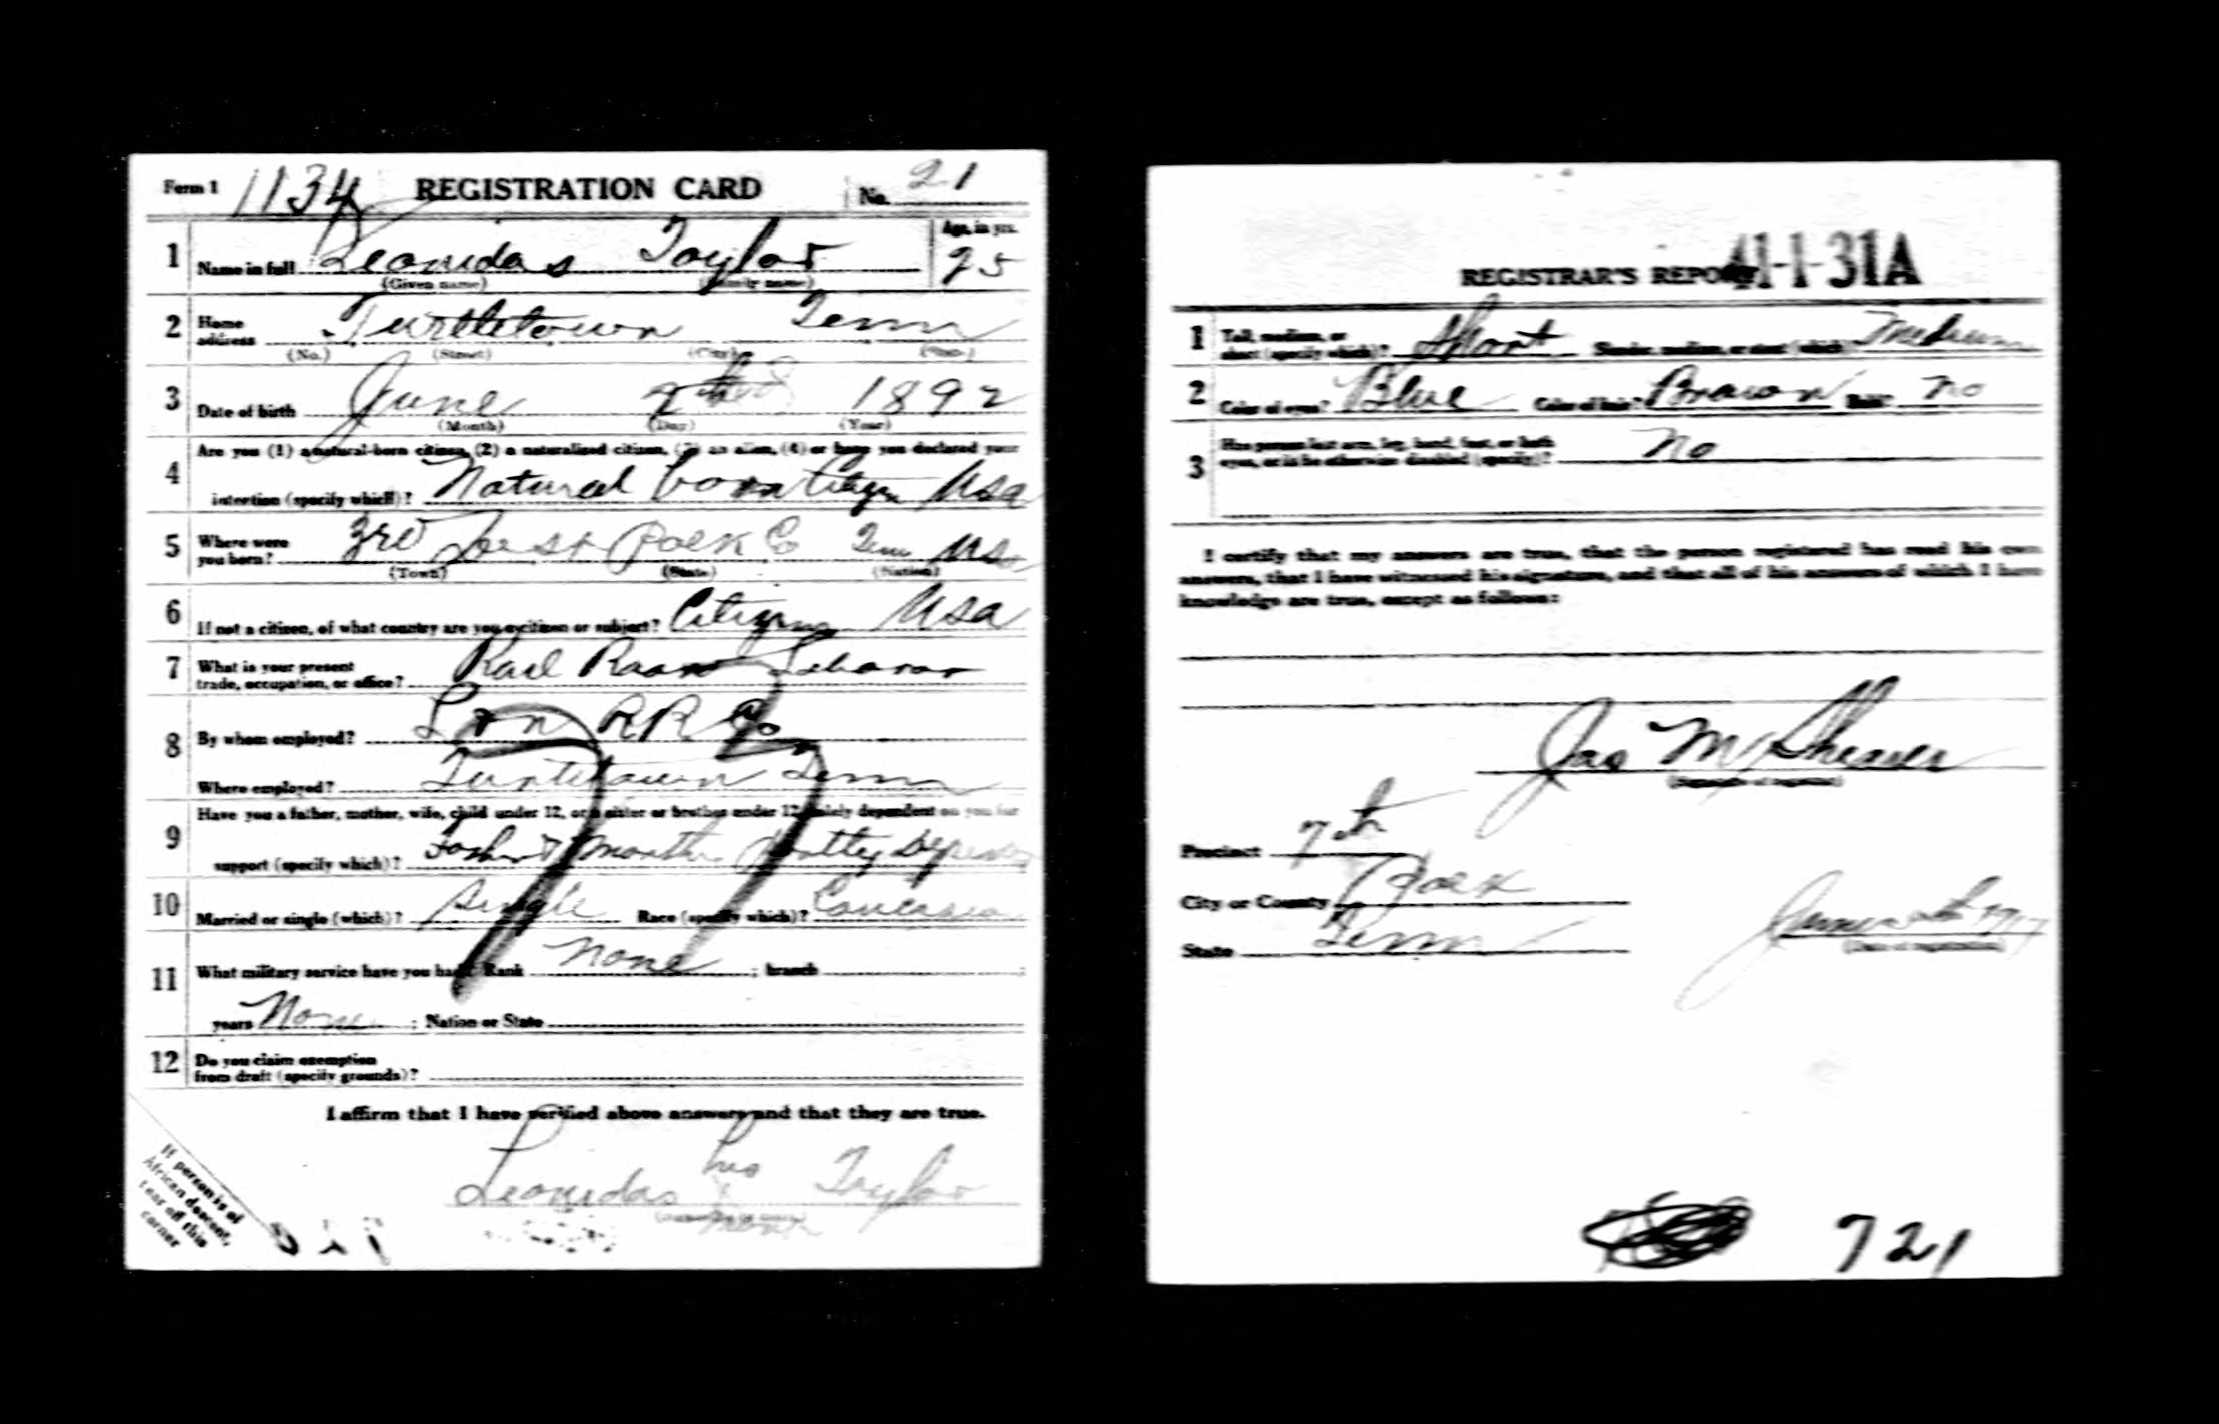 Form 1 1134 REGISTRATION CARD No. 21
1 Name in full Leonidas Taylor Age, in yrs. 25
(Given name) (Family name)
2 Home address Turtletown Tenn
(No.) (Street) (City) (State)
3 Date of birth June 1892
(Month) (Day) (Year)
4 Are you (1) a natural-born citizen, (2) a naturalized citizen, (3) an alien, (4) or have you declared your
intention (specify which)? Natural born Citizen USA
5 Where were you born? 3rd Dist Polk Co Tenn USA
(Town) (State) (Nation)
6 If not a citizen, of what country are you a citizen or subject? Citizen USA
7 What is your present trade, occupation, or office? Rail Road Labaror
8 By whom employed? L & N RR Co
Where employed? Turtletown Tenn
9 Have you a father, mother, wife, child under 12, or a sister or brother under 12, solely dependent on you for
support (specify which)? Father & Mother Partly
10 Married or single (which)? Single Race (specify which)? Caucasian
11 What military service have you had? Rank None ; branch ;
years None ; Nation or State
12 Do you claim exemption from draft (specify grounds)?
I affirm that I have verified above answers and that they are true.
his
Leonidas x Taylor
mark
If person is of
African descent,
tear off this
corner
REGISTRAR'S REPORT 41-1-31A
1 Tall, medium, or short (specify which)? Short Slender, medium, or stout (which)? Medium
2 Color of eyes? Blue Color of hair? Brown Bald? No
3 Has person lost arm, leg, hand, foot, or both eyes, or is he otherwise disabled (specify)? No
I certify that my answers are true, that the person registered has read his own
answers, that I have witnessed his signature, and that all of his answers of which I have
knowledge are true, except as follows:
Jas M Shearer
(Signature of registrar)
Precinct 7th
City or County Polk
State Tenn
June 1917
(Date of registration)
721